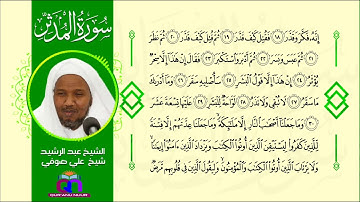 سورة المدثر
الشيخ عبد الرشيد
شيخ علي صوفي
QUR'ANU NUUR
إِنَّهُ فَكَّرَ وَقَدَّرَ ١٨ فَقُتِلَ كَيْفَ قَدَّرَ ١٩ ثُمَّ قُتِلَ كَيْفَ قَدَّرَ ٢٠ ثُمَّ نَظَرَ
٢١ ثُمَّ عَبَسَ وَبَسَرَ ٢٢ ثُمَّ أَدْبَرَ وَاسْتَكْبَرَ ٢٣ فَقَالَ إِنْ هَٰذَا إِلَّا سِحْرٌ
يُؤْثَرُ ٢٤ إِنْ هَٰذَا إِلَّا قَوْلُ الْبَشَرِ ٢٥ سَأُصْلِيهِ سَقَرَ ٢٦ وَمَا أَدْرَاكَ
مَا سَقَرُ ٢٧ لَا تُبْقِي وَلَا تَذَرُ ٢٨ لَوَّاحَةٌ لِّلْبَشَرِ ٢٩ عَلَيْهَا تِسْعَةَ عَشَرَ
٣٠ وَمَا جَعَلْنَا أَصْحَابَ النَّارِ إِلَّا مَلَائِكَةً وَمَا جَعَلْنَا عِدَّتَهُمْ إِلَّا فِتْنَةً
لِّلَّذِينَ كَفَرُوا لِيَسْتَيْقِنَ الَّذِينَ أُوتُوا الْكِتَابَ وَيَزْدَادَ الَّذِينَ آمَنُوا إِيمَانًا
وَلَا يَرْتَابَ الَّذِينَ أُوتُوا الْكِتَابَ وَالْمُؤْمِنُونَ وَلِيَقُولَ الَّذِينَ فِي قُلُوبِهِم مَّرَضٌ